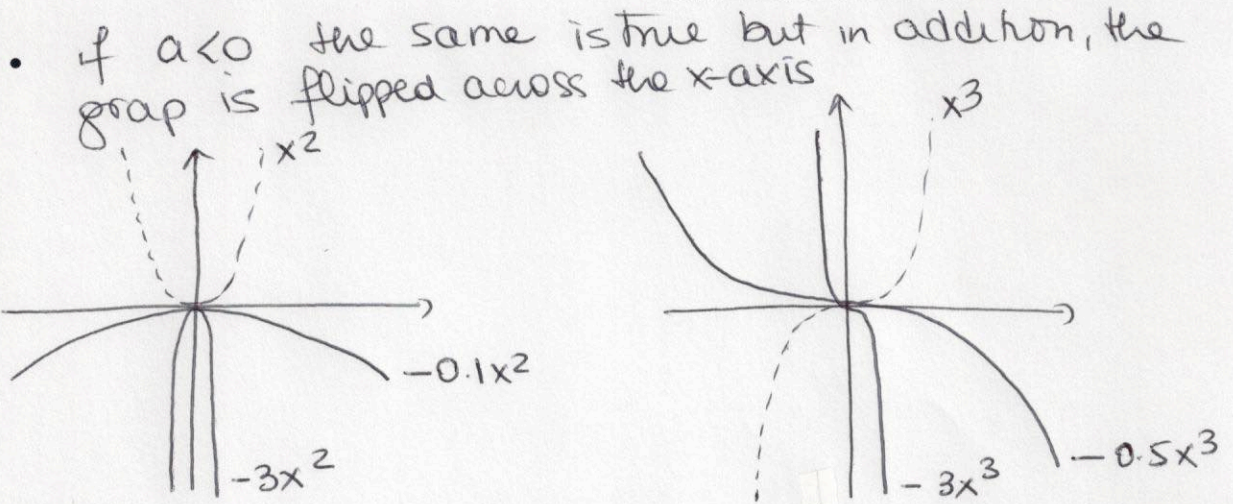 • if a<0 the same is true but in addition, the
grap is flipped across the x-axis
x²
x³
-0.1x²
-3x²
-0.5x³
-3x³